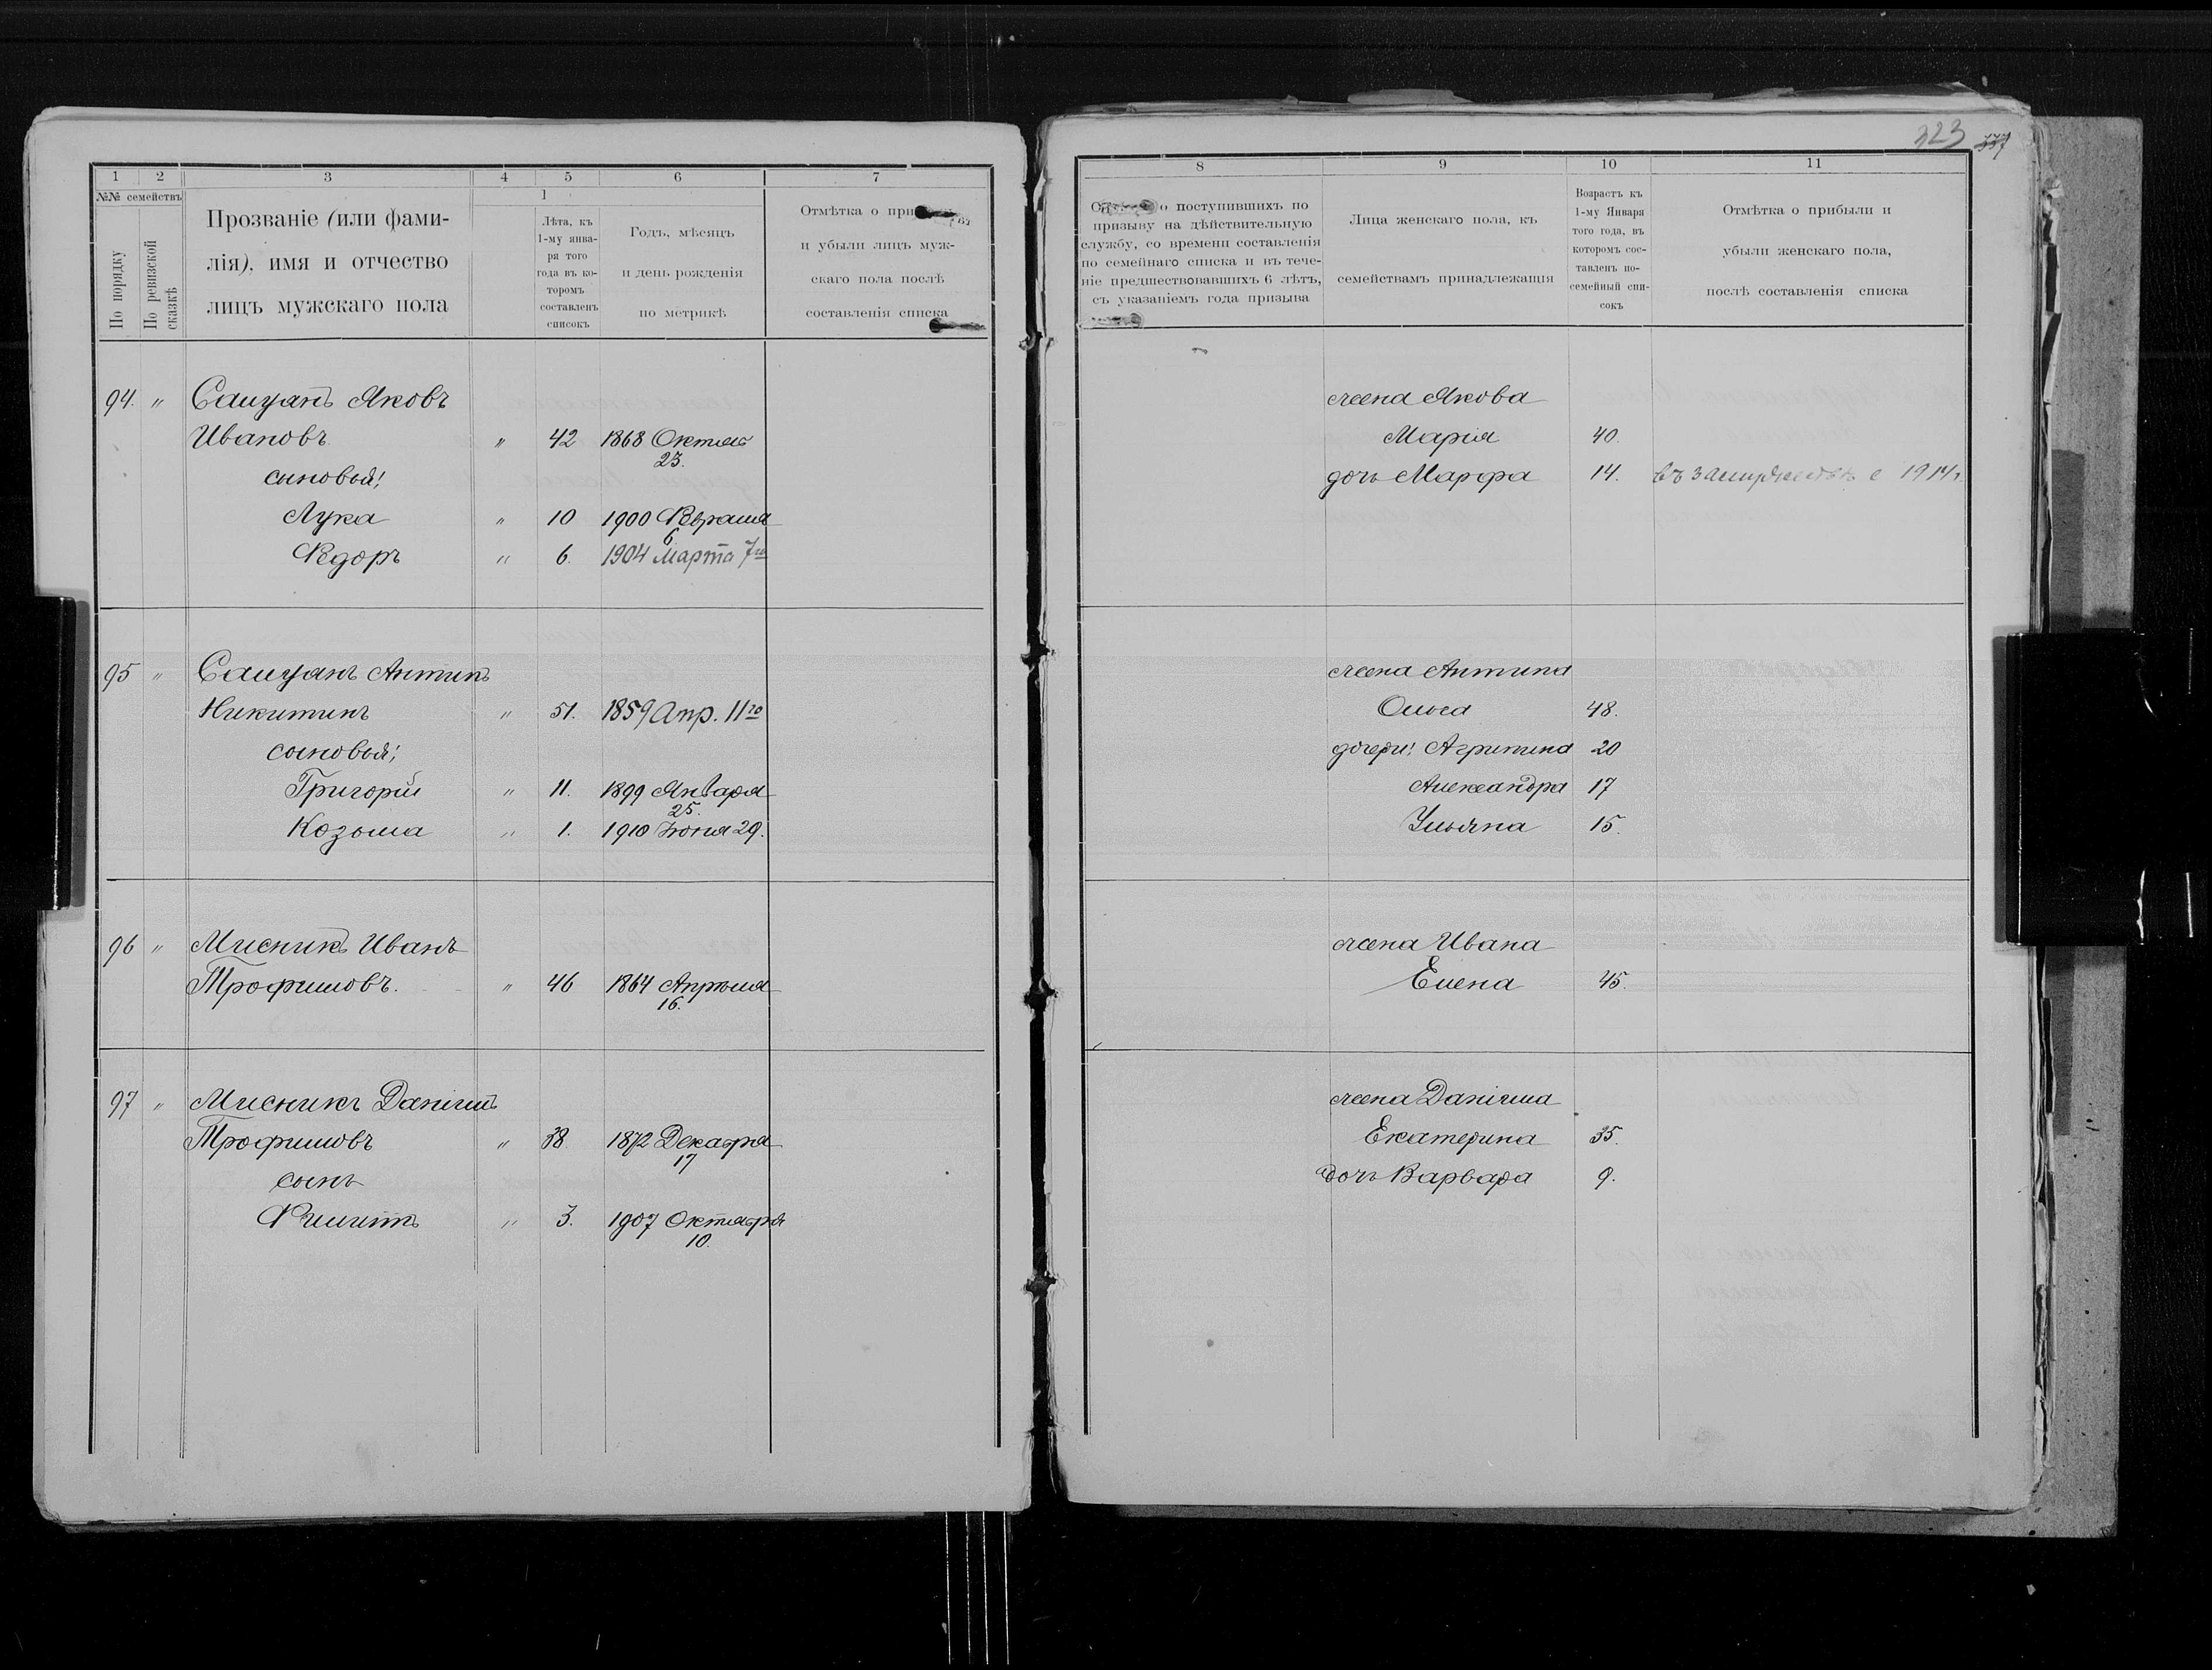 323 337
1 2 3 4 5 6 7
№№ семействъ
По порядку
По ревизской сказкѣ
Прозваніе (или фами-
лія), имя и отчество
лицъ мужскаго пола
1
Лѣта, къ
1-му янва-
ря того
года въ ко-
торомъ
составленъ
списокъ
Годъ, мѣсяцъ
и день рожденія
по метрикѣ
Отмѣтка о
и убыли лицъ муж-
скаго пола послѣ
составленія списка
94. " Сацуанъ Яковъ
Ивановъ " 42 1868 Октяб
23.
сыновья:
Лука " 10 1900 Февраля
6
Ѳедоръ " 6. 1904 Марта 7го
95 " Сацуанъ Антипъ
Никитинъ " 51. 1859 Апр. 11го
сыновья:
Григорій " 11. 1899 Января
25.
Козьма " 1. 1910 Іюня 29.
96 " Мисникъ Иванъ
Трофимовъ. " 46 1864 Апрѣля
16.
97 " Мисникъ Даніилъ
Трофимовъ " 38. 1872 Декабря
17
сынъ
Филиппъ " 3. 1907 Октября
10.
8 9 10 11
о поступившихъ по
призыву на дѣйствительную
службу, со времени составленія
по семейнаго списка и въ тече-
ніе предшествовавшихъ 6 лѣтъ,
съ указаніемъ года призыва
Лица женскаго пола, къ
семействамъ принадлежащія
Возрастъ къ
1-му Января
того года, въ
которомъ сос-
тавленъ по-
семейный спи-
сокъ
Отмѣтка о прибыли и
убыли женскаго пола,
послѣ составленія списка
жена Якова
Марія 40.
дочь Марфа 14. въ замужествѣ с 1914г.
жена Антипа
Ольга 48.
дочери: Агрипина 20
Александра 17
Ульяна 15.
жена Ивана
Елена 45.
жена Даніила
Екатерина 35.
дочь Варвара 9.